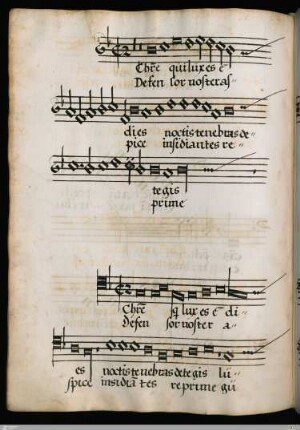 Chr̄e qui lux es ē
Defen sor noster as
dies noctis tenebras de
spice insidiantes re
tegis
prime
Chr̄e q lux es ē di
Defen sor noster a
es noctis tenebras detegis lu
spice insidiātes reprime gū